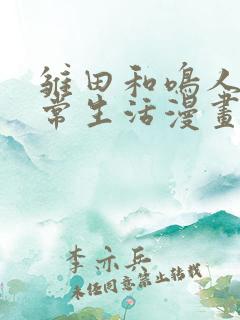 雛田和鳴人
常生活漫畫
李亦兵
未经同意禁止转载